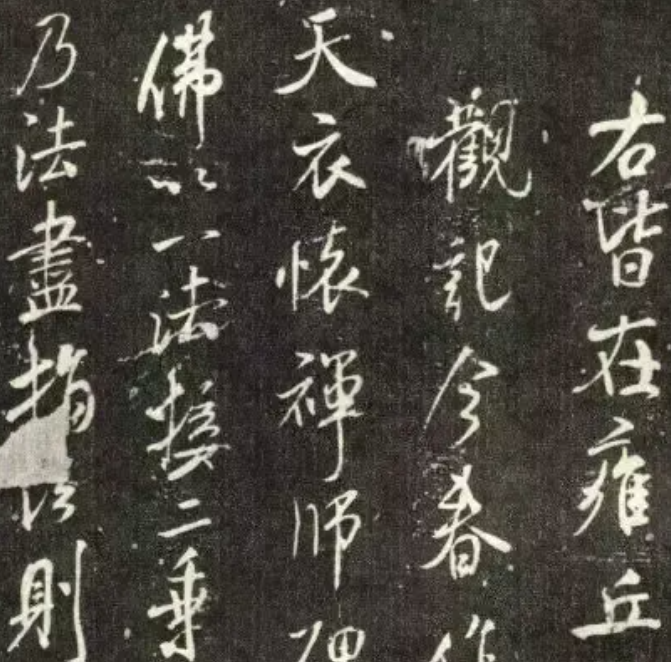 右皆在雍丘
觀記今春作
天衣懷禪師
佛以一法接二乘
乃法盡指以則